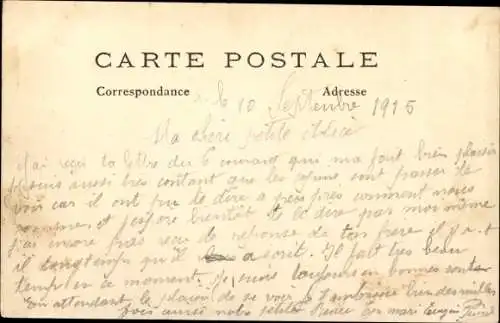 CARTE POSTALE
Correspondance Adresse
le 10 Septembre 1915
Ma cheri petite
J'ai reçu ta lettre du 6 courant qui ma fait bien plaisir
je suis aussi très contant que les sont passer te
voir car il ont pu te dire a peu près comment nous
sommes et j'espère bientôt te le dire par moi même
j'ai encore pas reçu de reponse de ton frère il y a
il longtemps qu'il a ecrit. Il fait très beau
temps en ce moment. Je suis toujours en bonne santer
En attendant le plaisir de se voir t'embrasse bien des milles
fois aussi notre petite ton mari Eugène